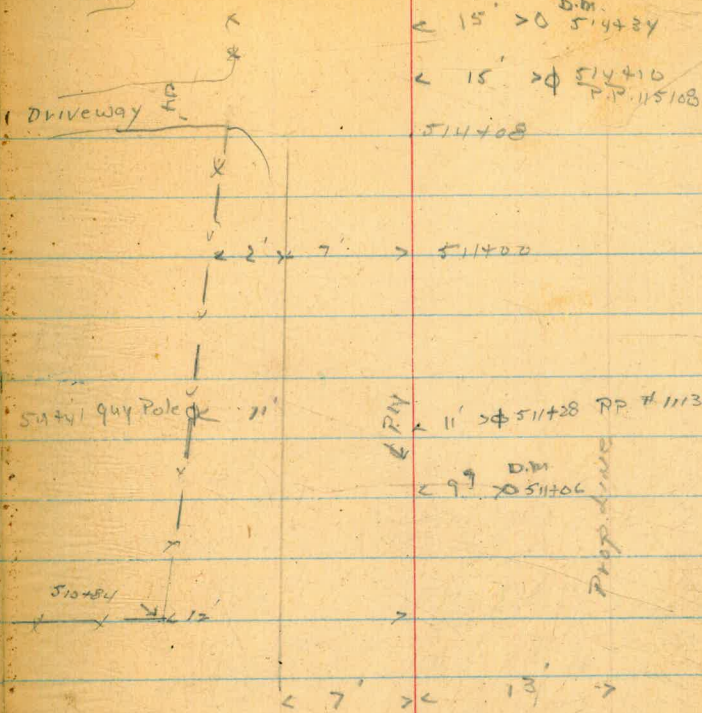 D.M.
< 15' >O 514+34
< 15' >ϕ 514+10
P.P. 115108
Driveway
514+08
< 2' × 7' > 511+00
511+41 guy Pole ϕ< 11'
< 11' >ϕ 511+28 P.P. # 1113
D.M.
< 9⁹ >O 511+06
Prop. Line
510+84
< 12' >
< 7' > < 13' >